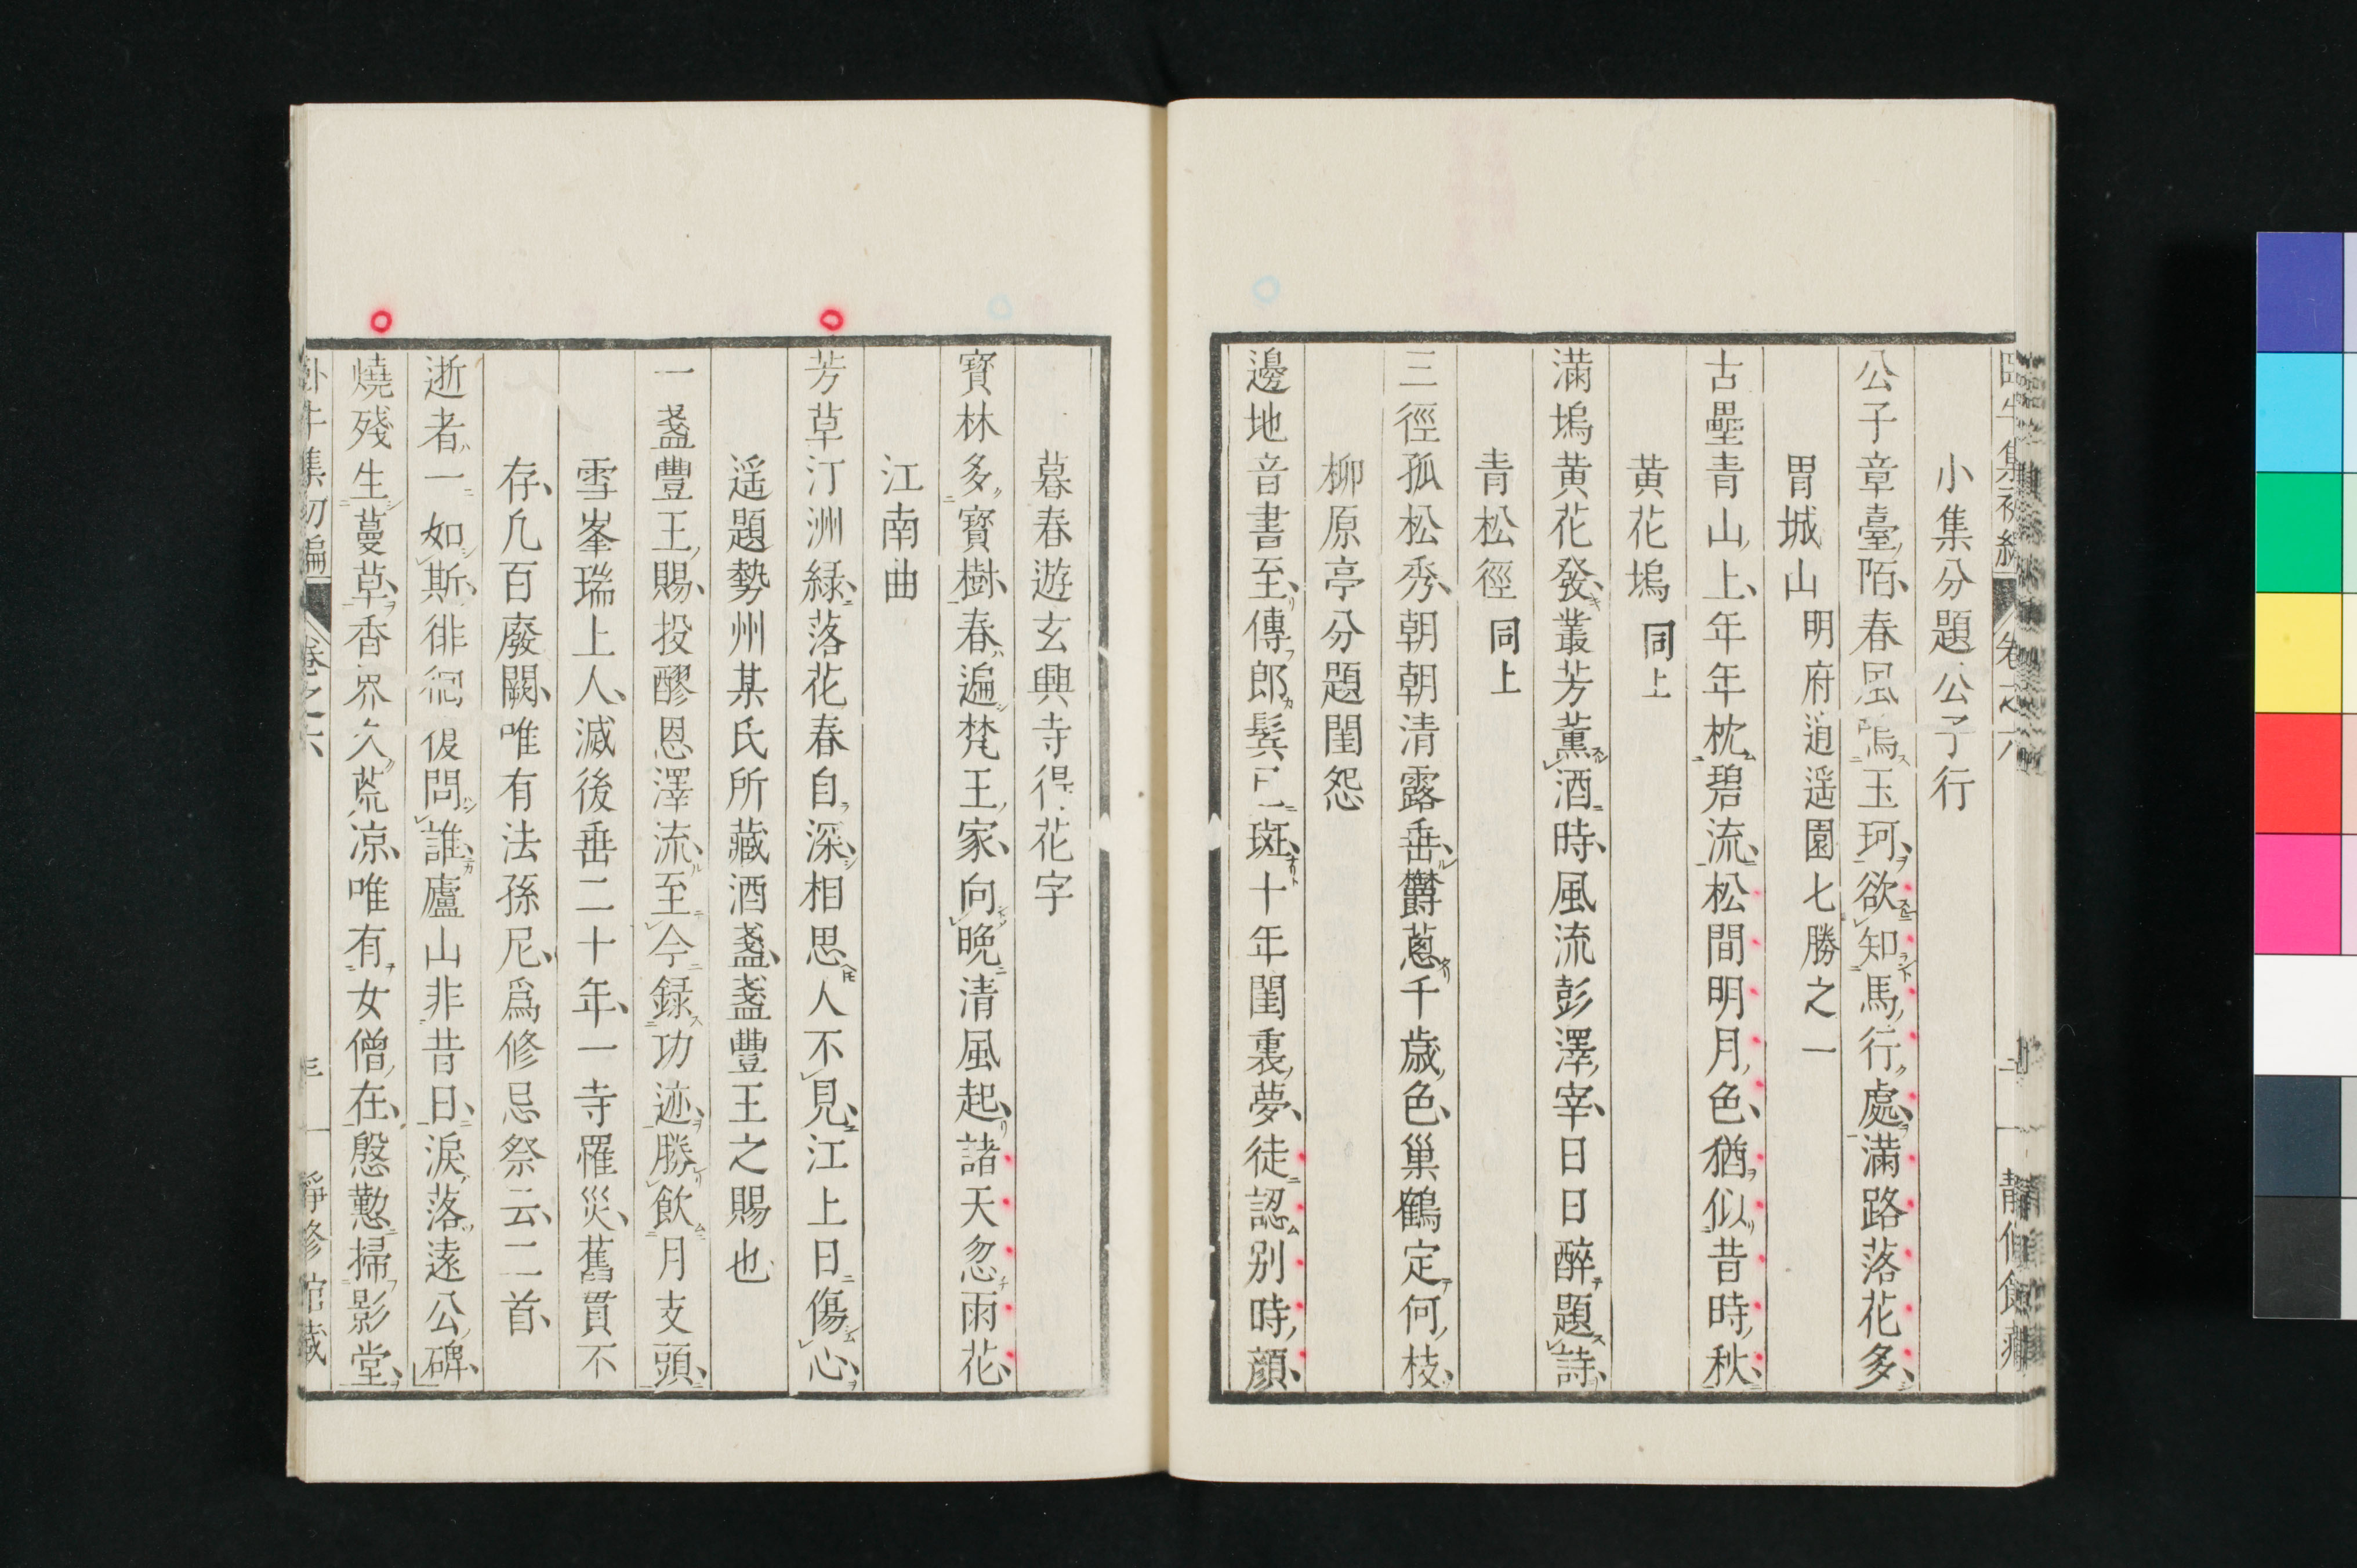 小集分題公子行
公子章臺陌春風嘶玉珂欲知馬行處滿路落花多
胃城山 明府逍遥園七勝之一
古壘青山上年年枕碧流松間明月色猶似昔時秋
黄花塢 同上
滿塢黄花發叢芳薫酒時風流彭澤宰日日醉題詩
青松徑 同上
三徑孤松秀朝朝清露垂欝葱千歳色巢鶴定何枝
柳原亭分題閨怨
邊地音書至傳郎鬂已斑十年閨裏夢徒認别時顔
暮春遊玄興寺得花字
寳林多寳樹春遍梵王家向晩清風起諸天忽雨花
江南曲
芳草汀洲緑落花春自深相思人不見江上日傷心
遥題勢州某氏所藏酒盞盞豐王之賜也
一盞豐王賜投醪恩澤流至今録功迹勝飲月支頭
雪峯瑞上人滅後垂二十年一寺罹災舊貫不
存凡百廢闕唯有法孫尼爲修忌祭云二首
逝者一如斯徘徊復問誰廬山非昔日淚落遠公碑
燒殘生蔓草香界久荒凉唯有女僧在慇懃掃影堂
臥牛集初編 卷之六 静修館藏